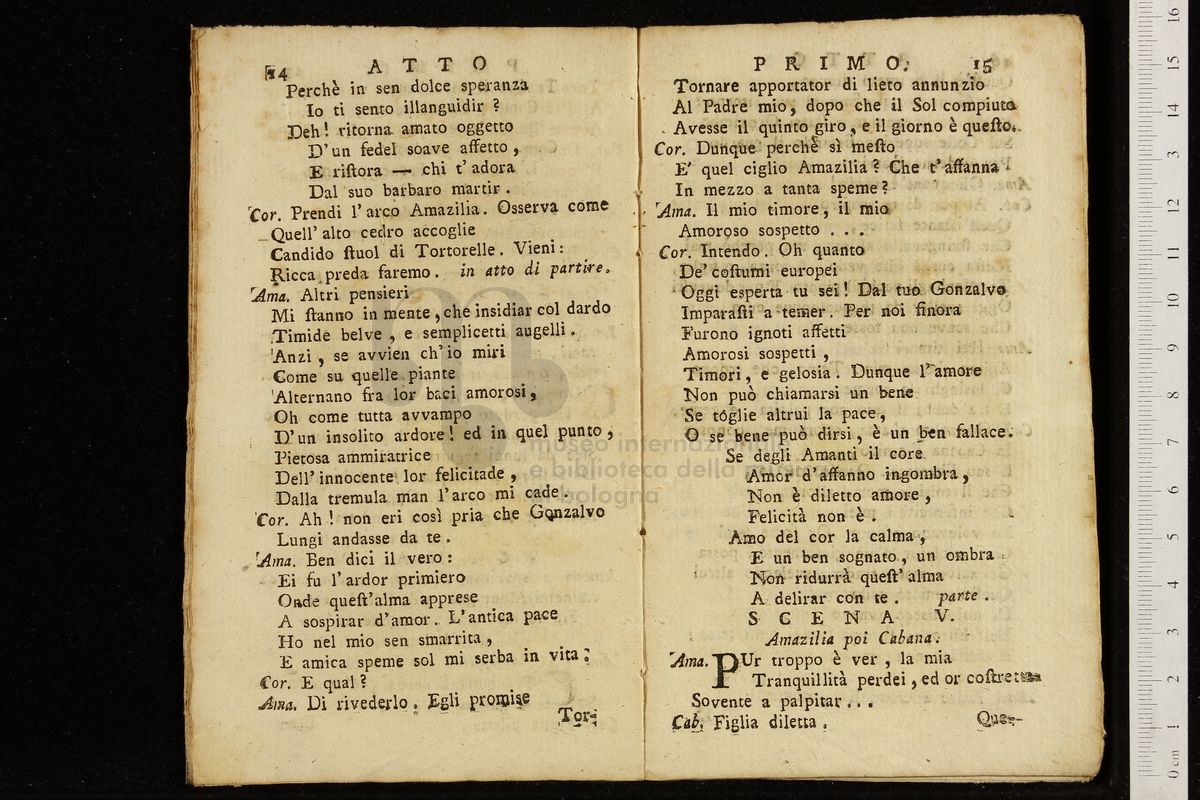 14 ATTO
Perchè in sen dolce speranza
Io ti sento illanguidir ?
Deh! ritorna amato oggetto
D'un fedel soave affetto,
E riſtora — chi t'adora
Dal suo barbaro martir.
Cor. Prendi l'arco Amazilia. Osserva come
Quell'alto cedro accoglie
Candido ſtuol di Tortorelle. Vieni:
Ricca preda faremo. in atto di partire.
Ama. Altri pensieri
Mi ſtanno in mente, che insidiar col dardo
Timide belve, e semplicetti augelli.
Anzi, se avvien ch'io miri
Come su quelle piante
Alternano fra lor baci amorosi,
Oh come tutta avvampo
D'un insolito ardore! ed in quel punto,
Pietosa ammiratrice
Dell'innocente lor felicitade,
Dalla tremula man l'arco mi cade.
Cor. Ah! non eri così pria che Gonzalvo
Lungi andasse da te.
Ama. Ben dici il vero:
Ei fu l'ardor primiero
Onde queſt'alma apprese
A sospirar d'amor. L'antica pace
Ho nel mio sen smarrita,
E amica speme sol mi serba in vita.
Cor. E qual?
Ama. Di rivederlo. Egli promise
Tor-
PRIMO. 15
Tornare apportator di lieto annunzio
Al Padre mio, dopo che il Sol compiuto
Avesse il quinto giro, e il giorno è queſto.
Cor. Dunque perchè sì meſto
E' quel ciglio Amazilia? Che t'affanna
In mezzo a tanta speme?
Ama. Il mio timore, il mio
Amoroso sospetto . . .
Cor. Intendo. Oh quanto
De' coſtumi europei
Oggi esperta tu sei! Dal tuo Gonzalvo
Imparaſti a temer. Per noi finora
Furono ignoti affetti
Amorosi sospetti,
Timori, e gelosia. Dunque l'amore
Non può chiamarsi un bene
Se toglie altrui la pace,
O se bene può dirsi, è un ben fallace.
Se degli Amanti il core
Amor d'affanno ingombra,
Non è diletto amore,
Felicità non è.
Amo del cor la calma,
E un ben sognato, un ombra
Non ridurrà queſt'alma
A delirar con te. parte.
SCENA V.
Amazilia poi Cabana.
Ama. PUr troppo è ver, la mia
Tranquillità perdei, ed or coſtretta
Sovente a palpitar...
Cab. Figlia diletta.
Que-
museo internazionale
e biblioteca della musica
bologna
0 cm 1 2 3 4 5 6 7 8 9 10 11 12 13 14 15 16